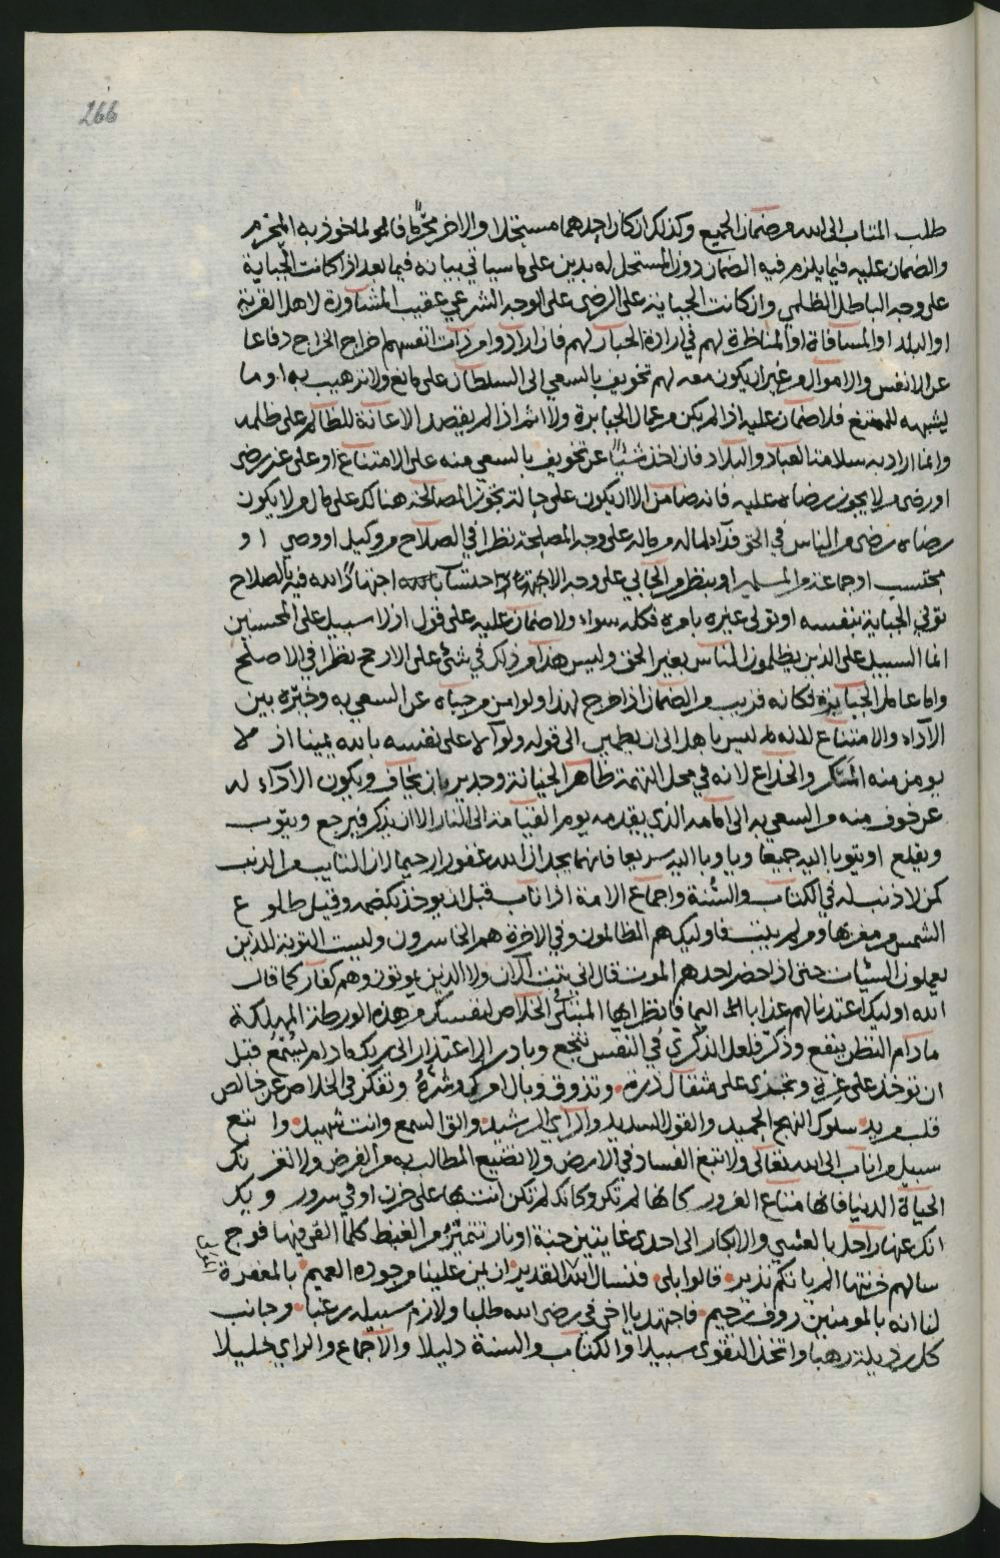 266
طلب المتاب الى الله من ضمان الجميع وكذلك ان كان احدهما مستحلا والاخر محرّما فالمحرم لما خوذ به المحرم
والضمان عليه فيما يلزم فيه الضمان دون المستحل له بدين على ما سياتي بيانه فيما بعد اذا كانت الجباية
على وجه الباطل الظلمي وان كانت الجباية على الرضى على الوجه الشرعي عقيب المشاورة لاهل القرية
او البلد او المسافاة او المناظرة لهم في ارادة الجبار لهم فان ارادوا من ذات انفسهم اخراج الخراج دفاعا
عن الانفس والاموال من غير ان يكون معه لهم تخويف بالسعي الى السلطان على مانع ولا ترهيب به او ما
يشبهه للممتنع فلا ضمان عليه اذا لم يكن من عمال الجبابرة ولا اثم اذا لم يقصد الاعانة للظالم على ظلمه
وانما اراد به سلامة العباد والبلاد فان اخذ شيئا عن تخويف بالسعي منه على الامتناع او على غير رضى
او رضى من لا يجوز رضاه عليه فانه ضامن الا ان يكون على حالة تجوز المصالحة هنالك على مال من لا يكون
رضاه رضى من الناس في الحق فداء لماله من ماله على وجه المصلحة نظرا في الصلاح من وكيل او وصي او
محتسب او جماعة من المسلمين او بنظر من الجابي على وجه الاجتهاد احتسابا لله اجتهادا لله فيه بالصلاح
تولي الجباية بنفسه او تولى غيره بامره فكله سواء ولا ضمان عليه على قول اذ لا سبيل على المحسنين
انما السبيل على الذين يظلمون الناس بغير الحق وليس هذا من ذلك في شيء على الارجح نظرا في الاصلح
واما عامل الجبابرة فكانه قريب من الضمان اذا خرج لهذا ولو امن من جباه عن السعي به وخيّره بين
الاداء والامتناع لانه ليس باهل الى ان يطمئن الى قوله ولو آلا على نفسه بالله يمينا اذ لا
يومن منه المكر والخداع لانه في محل التهمة ظاهر الخيانة وجدير بان يخاف ويكون الاداء له
عن خوف منه من السعي به الى امامه الذي يقدمه يوم القيامة الى النار الا ان يذكر فيرجع ويتوب
ويقلع او يتوبا اليه جميعا ويا وبا اليه سريعا فانهما يجدان الله غفورا رحيما اذ التايب من الذنب
كمن لا ذنب له في الكتاب والسُّنة واجماع الامة اذا تاب قبل ان يوخذ بكضمه وقبل طلوع
الشمس من مغربها ومن لم يتب فاوليك هم الظالمون وفي الاخرة هم الخاسرون وليست التوبة للذين
يعملون السيّات حتى اذا حضر احدهم الموت قال اني تبت الآن ولا الذين يموتون وهم كفار كما قال
الله اوليك اعتدنا لهم عذابا اليما فانظر ايها المبتلى في الخلاص لنفسك من هذه الورطة المهلكة
ما دام النظر ينفع وذكّر فلعل الذكرى في النفس تنجع وبادر الى اعتذار الى ربك ما دام يُسْمَعُ قبل
ان توخذ على غرة وتجزى على مثقال ذرة. وتذوق وبال امرك وشرّهُ وتفكر في الخلاص عن خالص
قلب مريد. سلوك النهج الحميد والقول السديد والراي الرشيد. والق السمع وانت شهيد. واتبع
سبيل من اناب الى الله تعالى ولا تتبع الفساد في الارض ولا تضيع المطالب به من الفرض ولا تغرنك
الحياة الدنيا فانها متاع الغرور كانها لم تكن وكانك لم تكن انت بها على حزن او في سرور ويك
انك عنها راحل بالعشي والابكار الى احدى غايتين جنة او نار تتميّز من الغيظ كلما القي فيها فوج
سالهم خزنتها الم ياتكم نذير. قالوا بلى. فنسال الله القدير. ان يمن علينا من جوده العميم. بالمغفرة
لنا انه بالمومنين روف رحيم. فاجتهد يا اخي في رضى الله طلبا ولازم سبيله رغبا. وجانب
كل رذيلة رهبا واتخذ التقوى سبيلا والكتاب والسنة دليلا والاجماع والراي خليلا